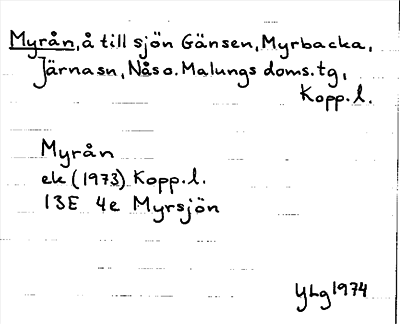 Myrån, å till sjön Gänsen, Myrbacka,
Järnasn, Nås o. Malungs doms.tg,
Kopp.l.
Myrån
ek (1973) Kopp.l.
13E 4e Myrsjön
YLg 1974